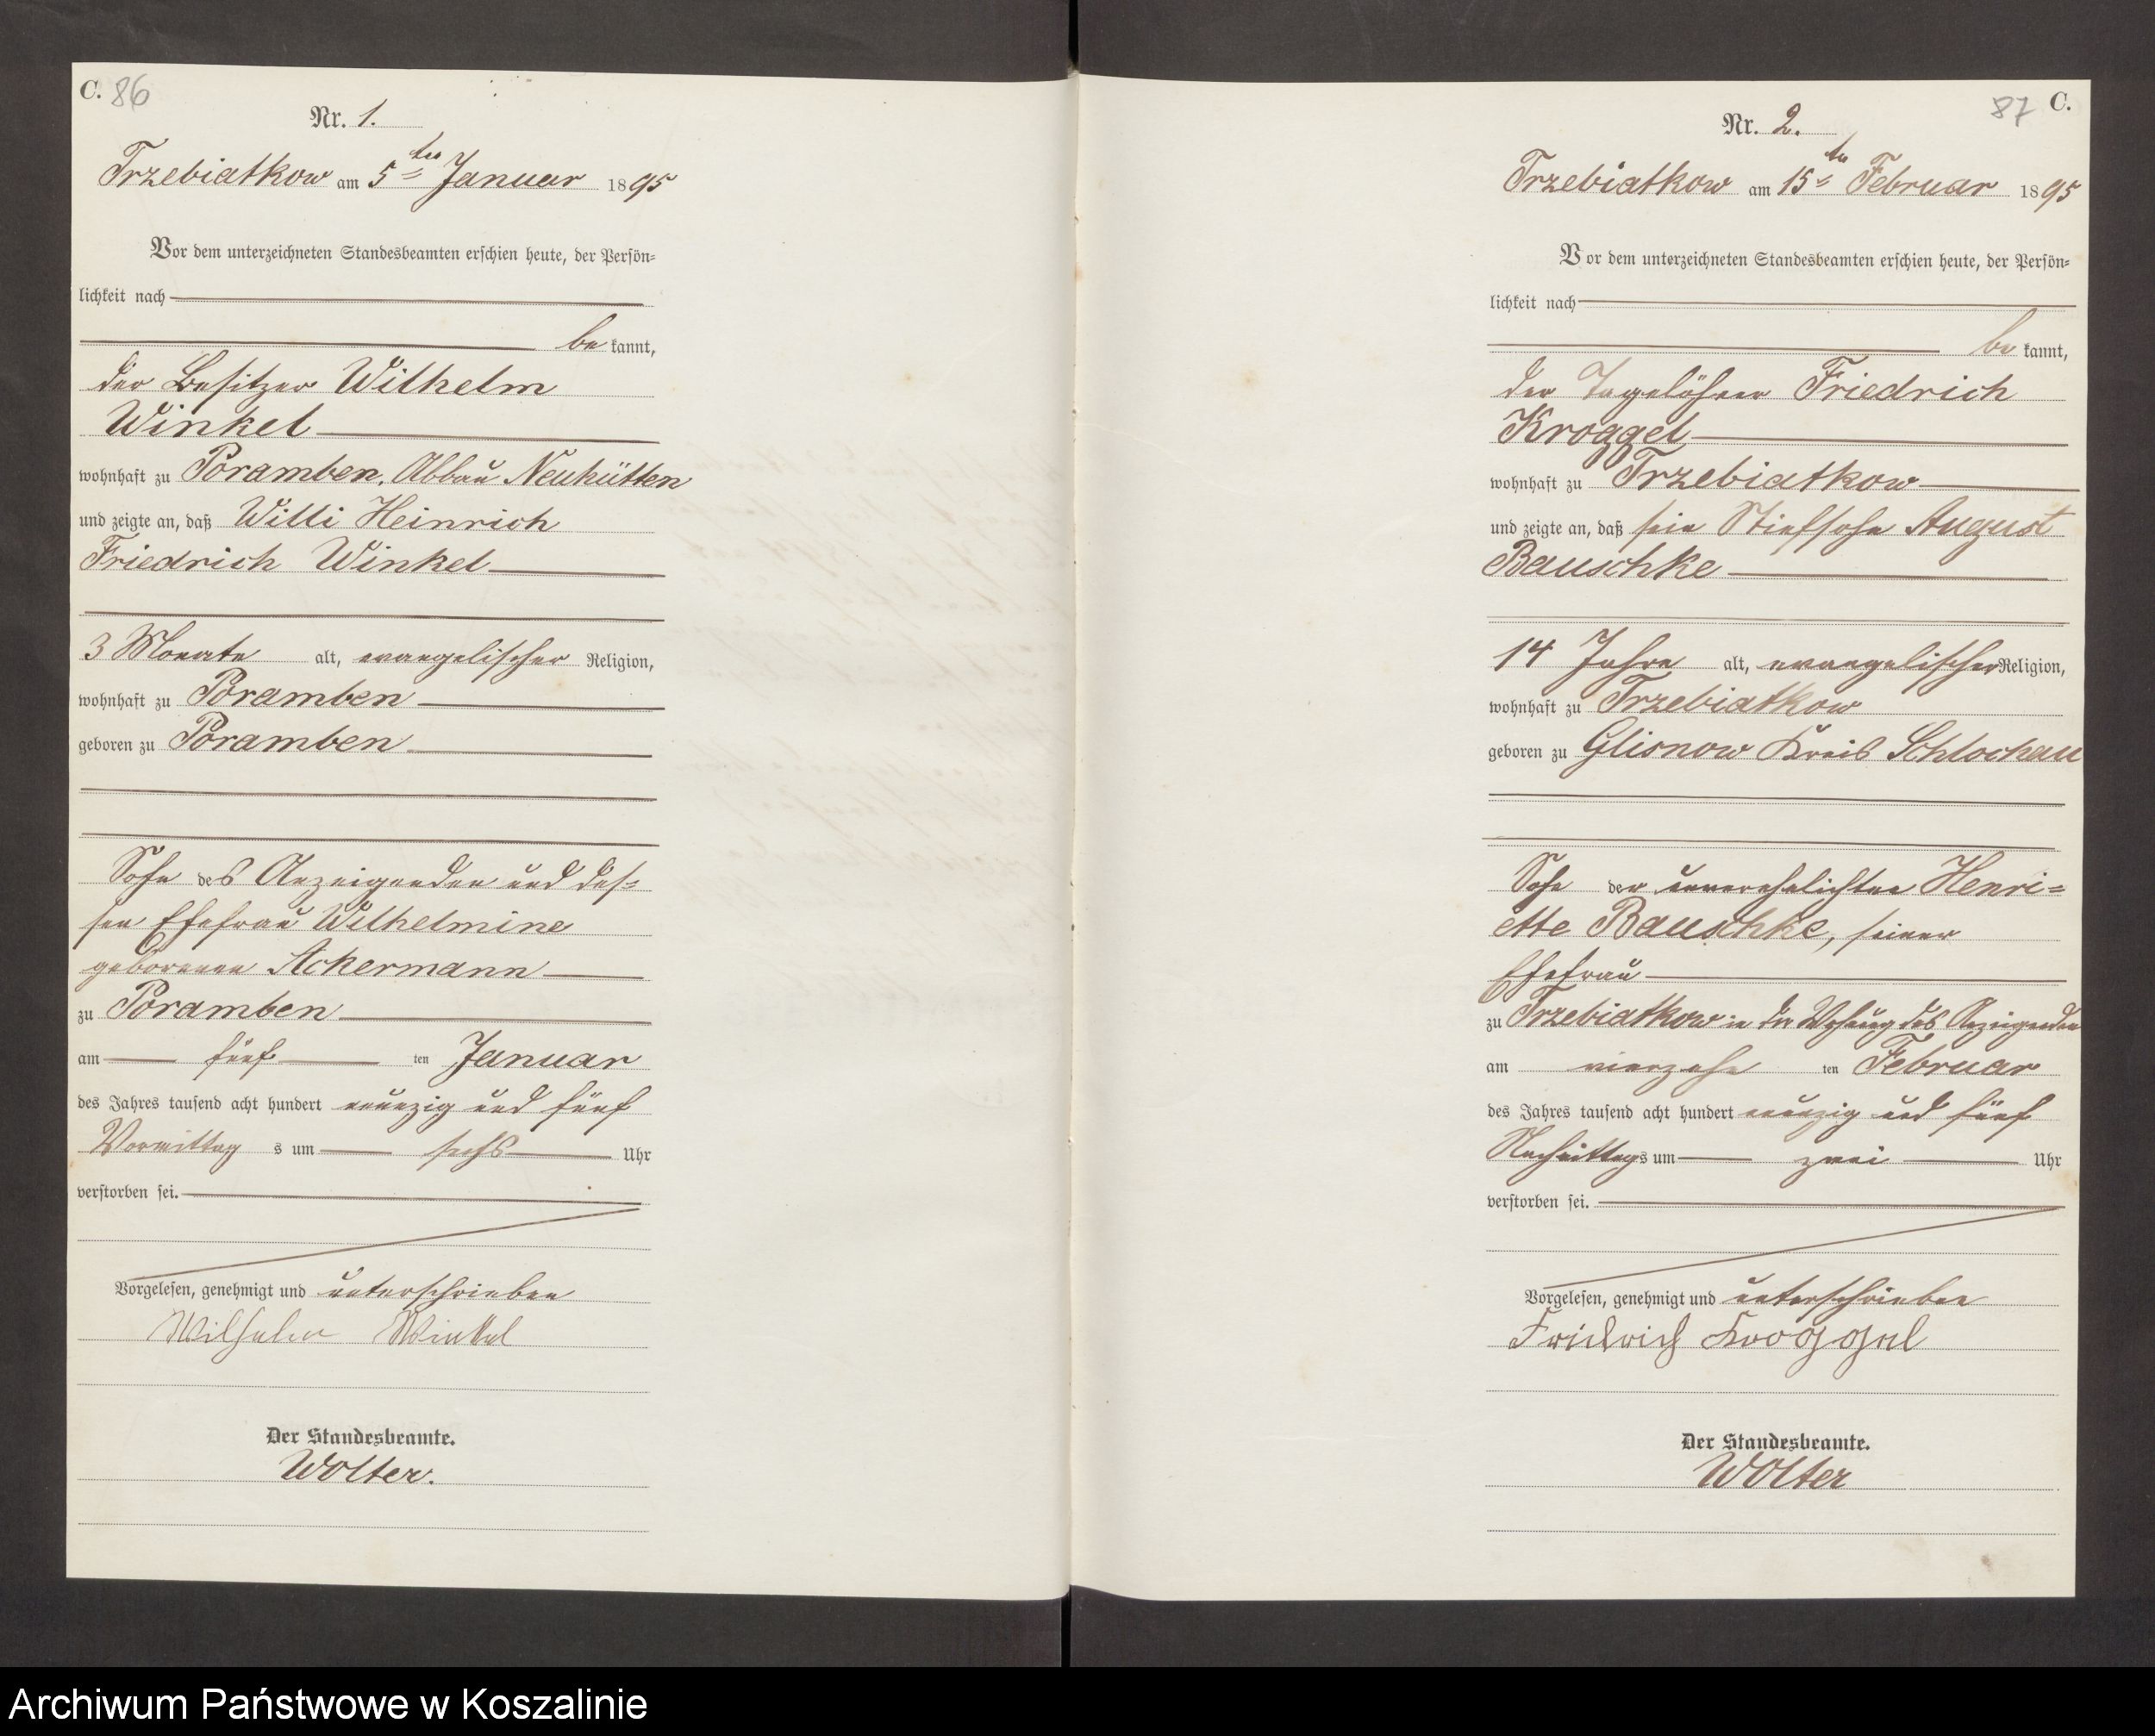 C. 86
Nr. 1.
Trzebiatkow am 5ten Januar 1895
Vor dem unterzeichneten Standesbeamten erschien heute, der Persön=
lichkeit nach
be kannt,
der Besitzer Wilhelm
Winkel
wohnhaft zu Poramben, Abbau Neuhütten
und zeigte an, daß Willi Heinrich
Friedrich Winkel
3 Monate alt, evangelischer Religion,
wohnhaft zu Poramben
geboren zu Poramben
Sohn des Anzeigenden und des=
sen Ehefrau Wilhelmine
geborenen Ackermann
zu Poramben
am fünf ten Januar
des Jahres tausend acht hundert neunzig und fünf
Vormittag s um sechs Uhr
verstorben sei.
Vorgelesen, genehmigt und unterschrieben
Wilhelm Winkel
Der Standesbeamte.
Wolter.
87 C.
Nr. 2.
Trzebiatkow am 15ten Februar 1895
Vor dem unterzeichneten Standesbeamten erschien heute, der Persön=
lichkeit nach
be kannt,
der Tagelöhner Friedrich
Kroggel
wohnhaft zu Trzebiatkow
und zeigte an, daß sein Stiefsohn August
Bauschke
14 Jahre alt, evangelischer Religion,
wohnhaft zu Trzebiatkow
geboren zu Glisnow Kreis Schlochau
Sohn der unverehelichten Henri=
ette Bauschke, seiner
Ehefrau
zu Trzebiatkow in der Wohnung des Anzeigenden
am vierzehn ten Februar
des Jahres tausend acht hundert neunzig und fünf
Nachmittags um zwei Uhr
verstorben sei.
Vorgelesen, genehmigt und unterschrieben
Fridrich Kroggel
Der Standesbeamte.
Wolter
Archiwum Państwowe w Koszalinie